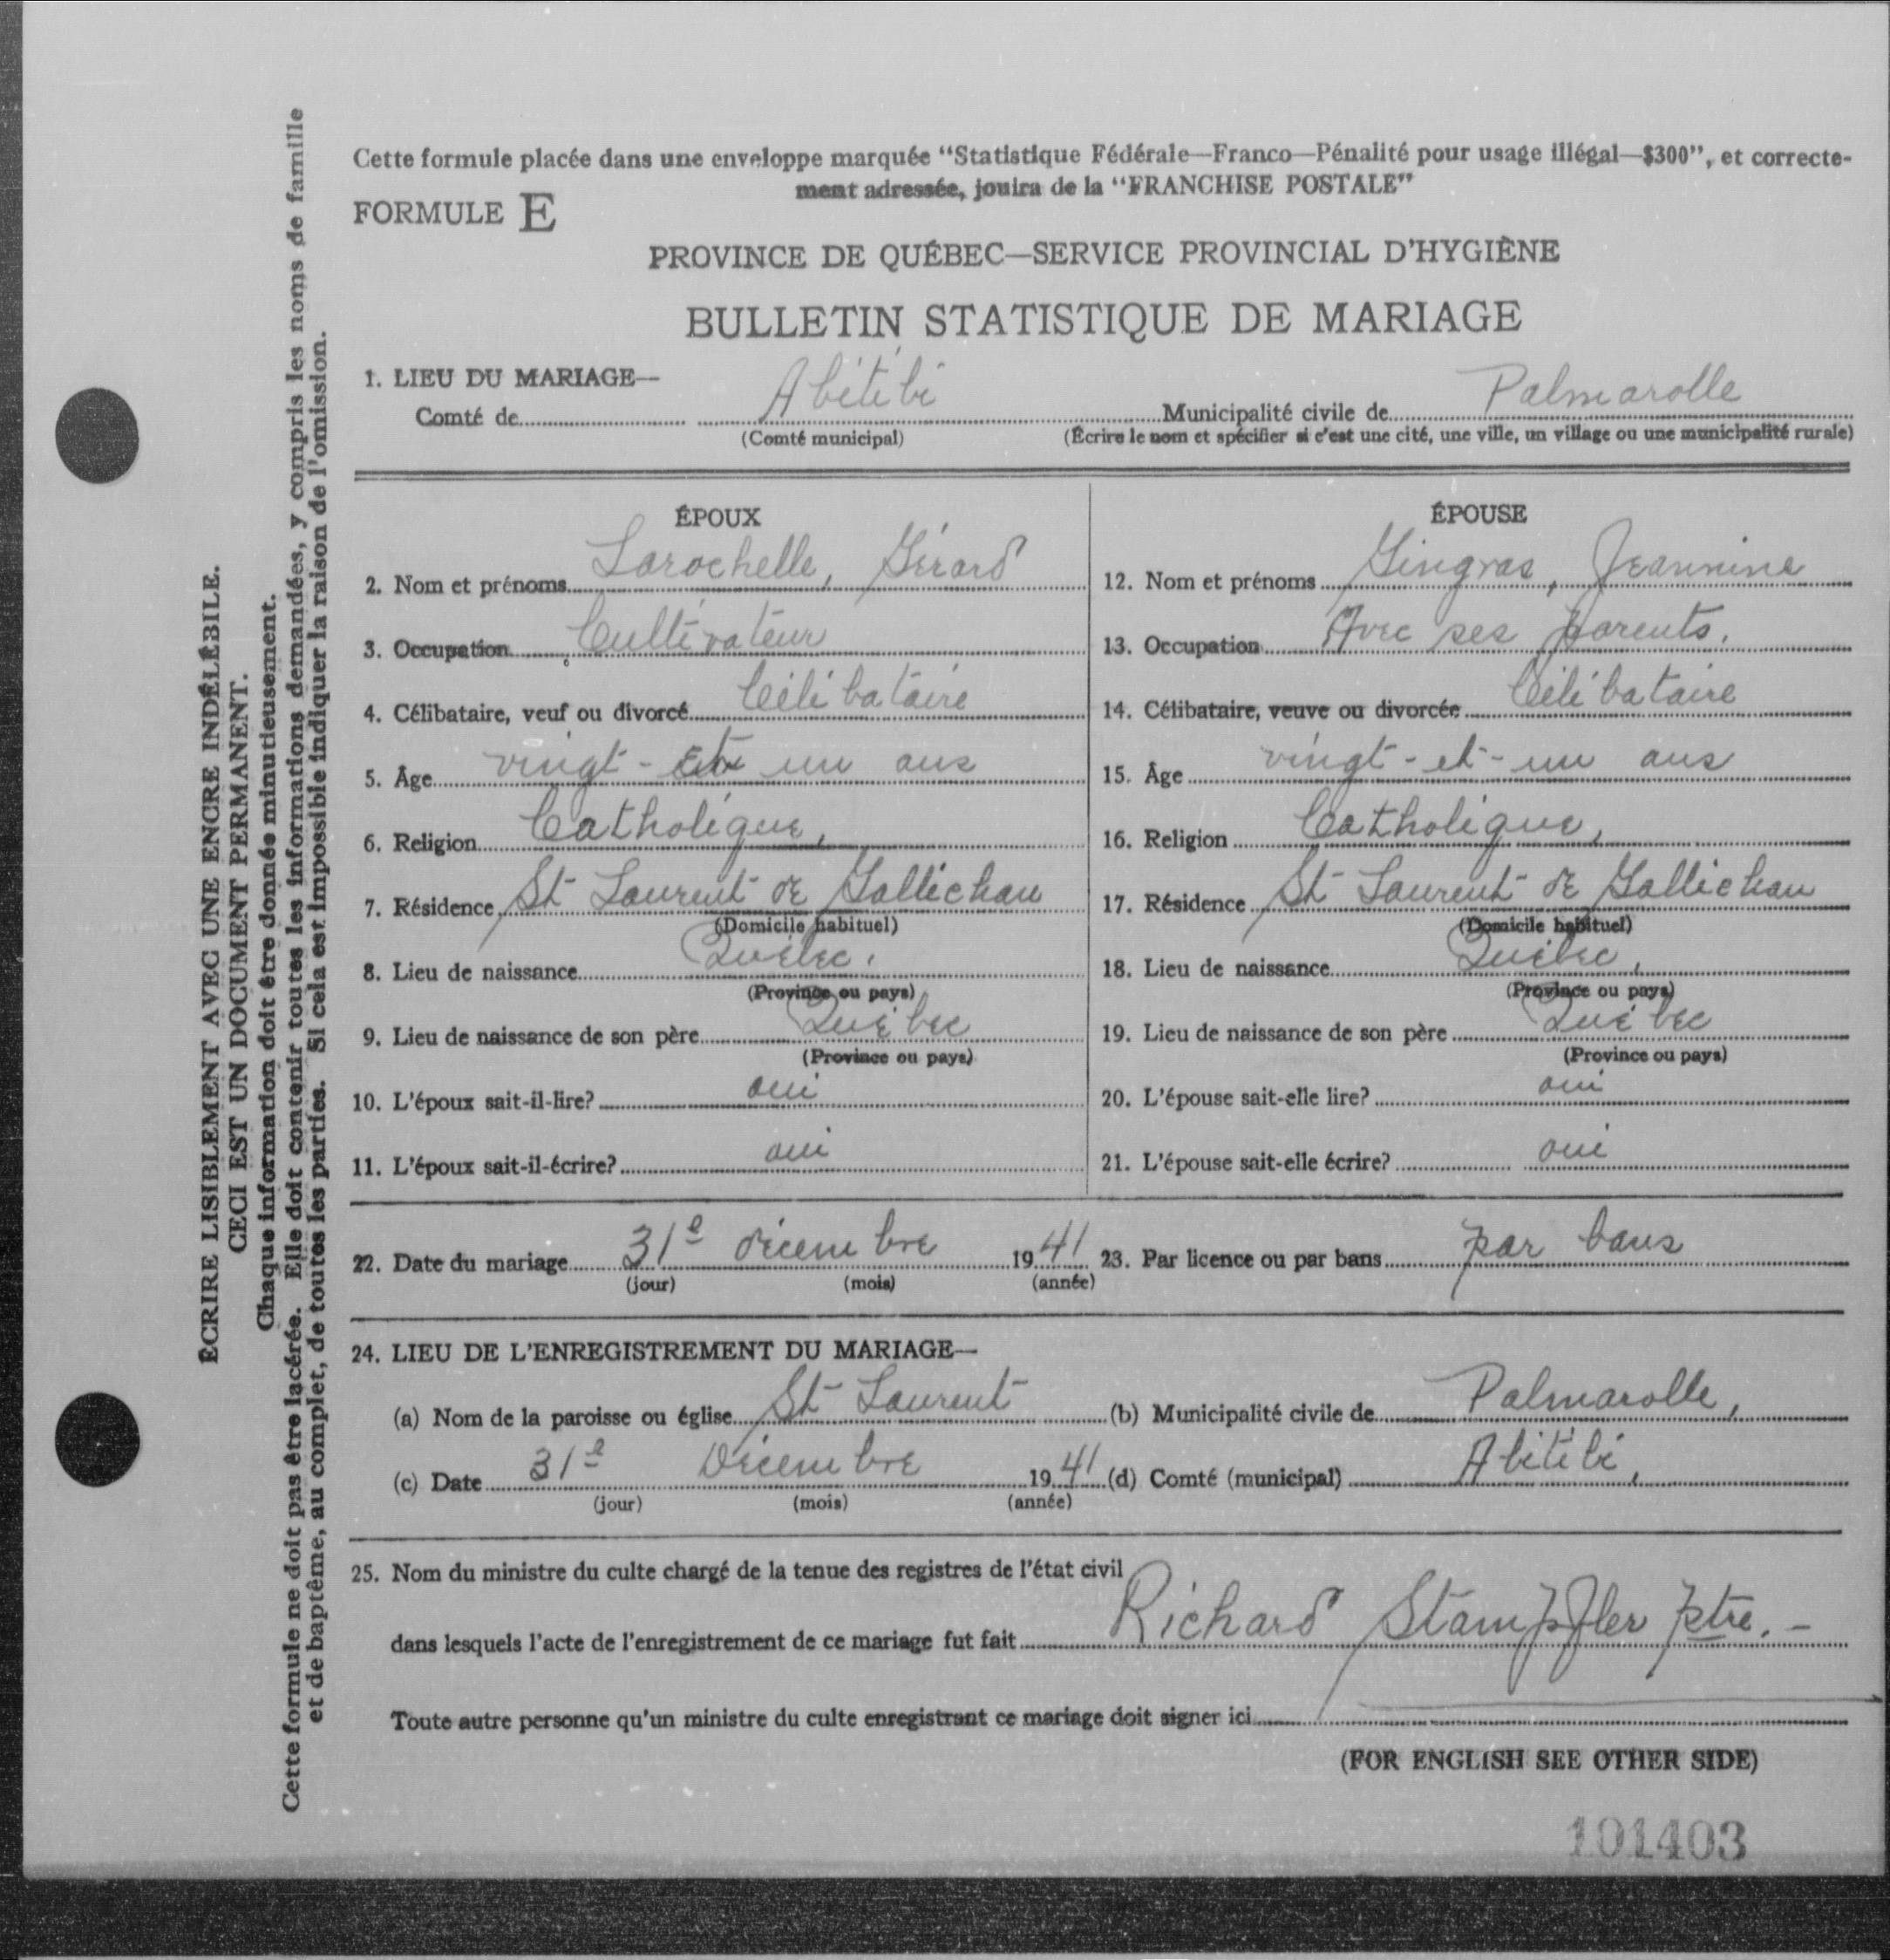 Cette formule placée dans une enveloppe marquée “Statistique Fédérale—Franco—Pénalité pour usage illégal—$300”, et correcte-
ment adressée, jouira de la “FRANCHISE POSTALE”
FORMULE E
PROVINCE DE QUÉBEC—SERVICE PROVINCIAL D'HYGIÈNE
BULLETIN STATISTIQUE DE MARIAGE
1. LIEU DU MARIAGE—
Comté de Abitibi Municipalité civile de Palmarolle
(Comté municipal) (Écrire le nom et spécifier si c'est une cité, une ville, un village ou une municipalité rurale)
ÉPOUX
2. Nom et prénoms Larochelle, Gérard
3. Occupation Cultivateur
4. Célibataire, veuf ou divorcé Célibataire
5. Âge vingt-et un ans
6. Religion Catholique,
7. Résidence St Laurent de Gallichan
(Domicile habituel)
8. Lieu de naissance Québec.
(Province ou pays)
9. Lieu de naissance de son père Québec
(Province ou pays)
10. L'époux sait-il-lire? oui
11. L'époux sait-il-écrire? oui
ÉPOUSE
12. Nom et prénoms Gingras, Jeannine
13. Occupation Avec ses parents.
14. Célibataire, veuve ou divorcée Célibataire
15. Âge vingt-et-un ans
16. Religion Catholique,
17. Résidence St Laurent de Gallichan
(Domicile habituel)
18. Lieu de naissance Québec,
(Province ou pays)
19. Lieu de naissance de son père Québec
(Province ou pays)
20. L'épouse sait-elle lire? oui
21. L'épouse sait-elle écrire? oui
22. Date du mariage 31e décembre 1941 23. Par licence ou par bans par bans
(jour) (mois) (année)
24. LIEU DE L'ENREGISTREMENT DU MARIAGE—
(a) Nom de la paroisse ou église St Laurent (b) Municipalité civile de Palmarolle,
(c) Date 31e Décembre 1941 (d) Comté (municipal) Abitibi,
(jour) (mois) (année)
25. Nom du ministre du culte chargé de la tenue des registres de l'état civil
dans lesquels l'acte de l'enregistrement de ce mariage fut fait Richard Stampfler ptre. -
Toute autre personne qu'un ministre du culte enregistrant ce mariage doit signer ici
(FOR ENGLISH SEE OTHER SIDE)
101403
ÉCRIRE LISIBLEMENT AVEC UNE ENCRE INDÉLÉBILE.
CECI EST UN DOCUMENT PERMANENT.
Chaque information doit être donnée minutieusement.
Cette formule ne doit pas être lacérée. Elle doit contenir toutes les informations demandées, y compris les noms de famille
et de baptême, au complet, de toutes les parties. Si cela est impossible indiquer la raison de l'omission.